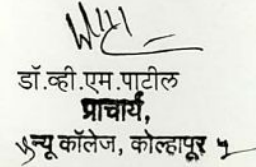 डॉ.व्ही.एम.पाटील
प्राचार्य,
न्यू कॉलेज, कोल्हापूर